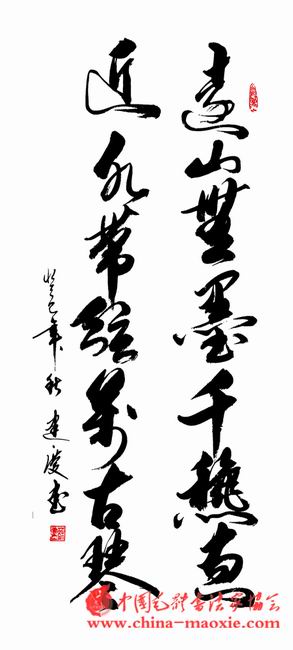 遠山無墨千秋畫
近水帶絃萬古琴
癸巳年秋 建慶书
中国毛体书法家协会
www.china-maoxie.com